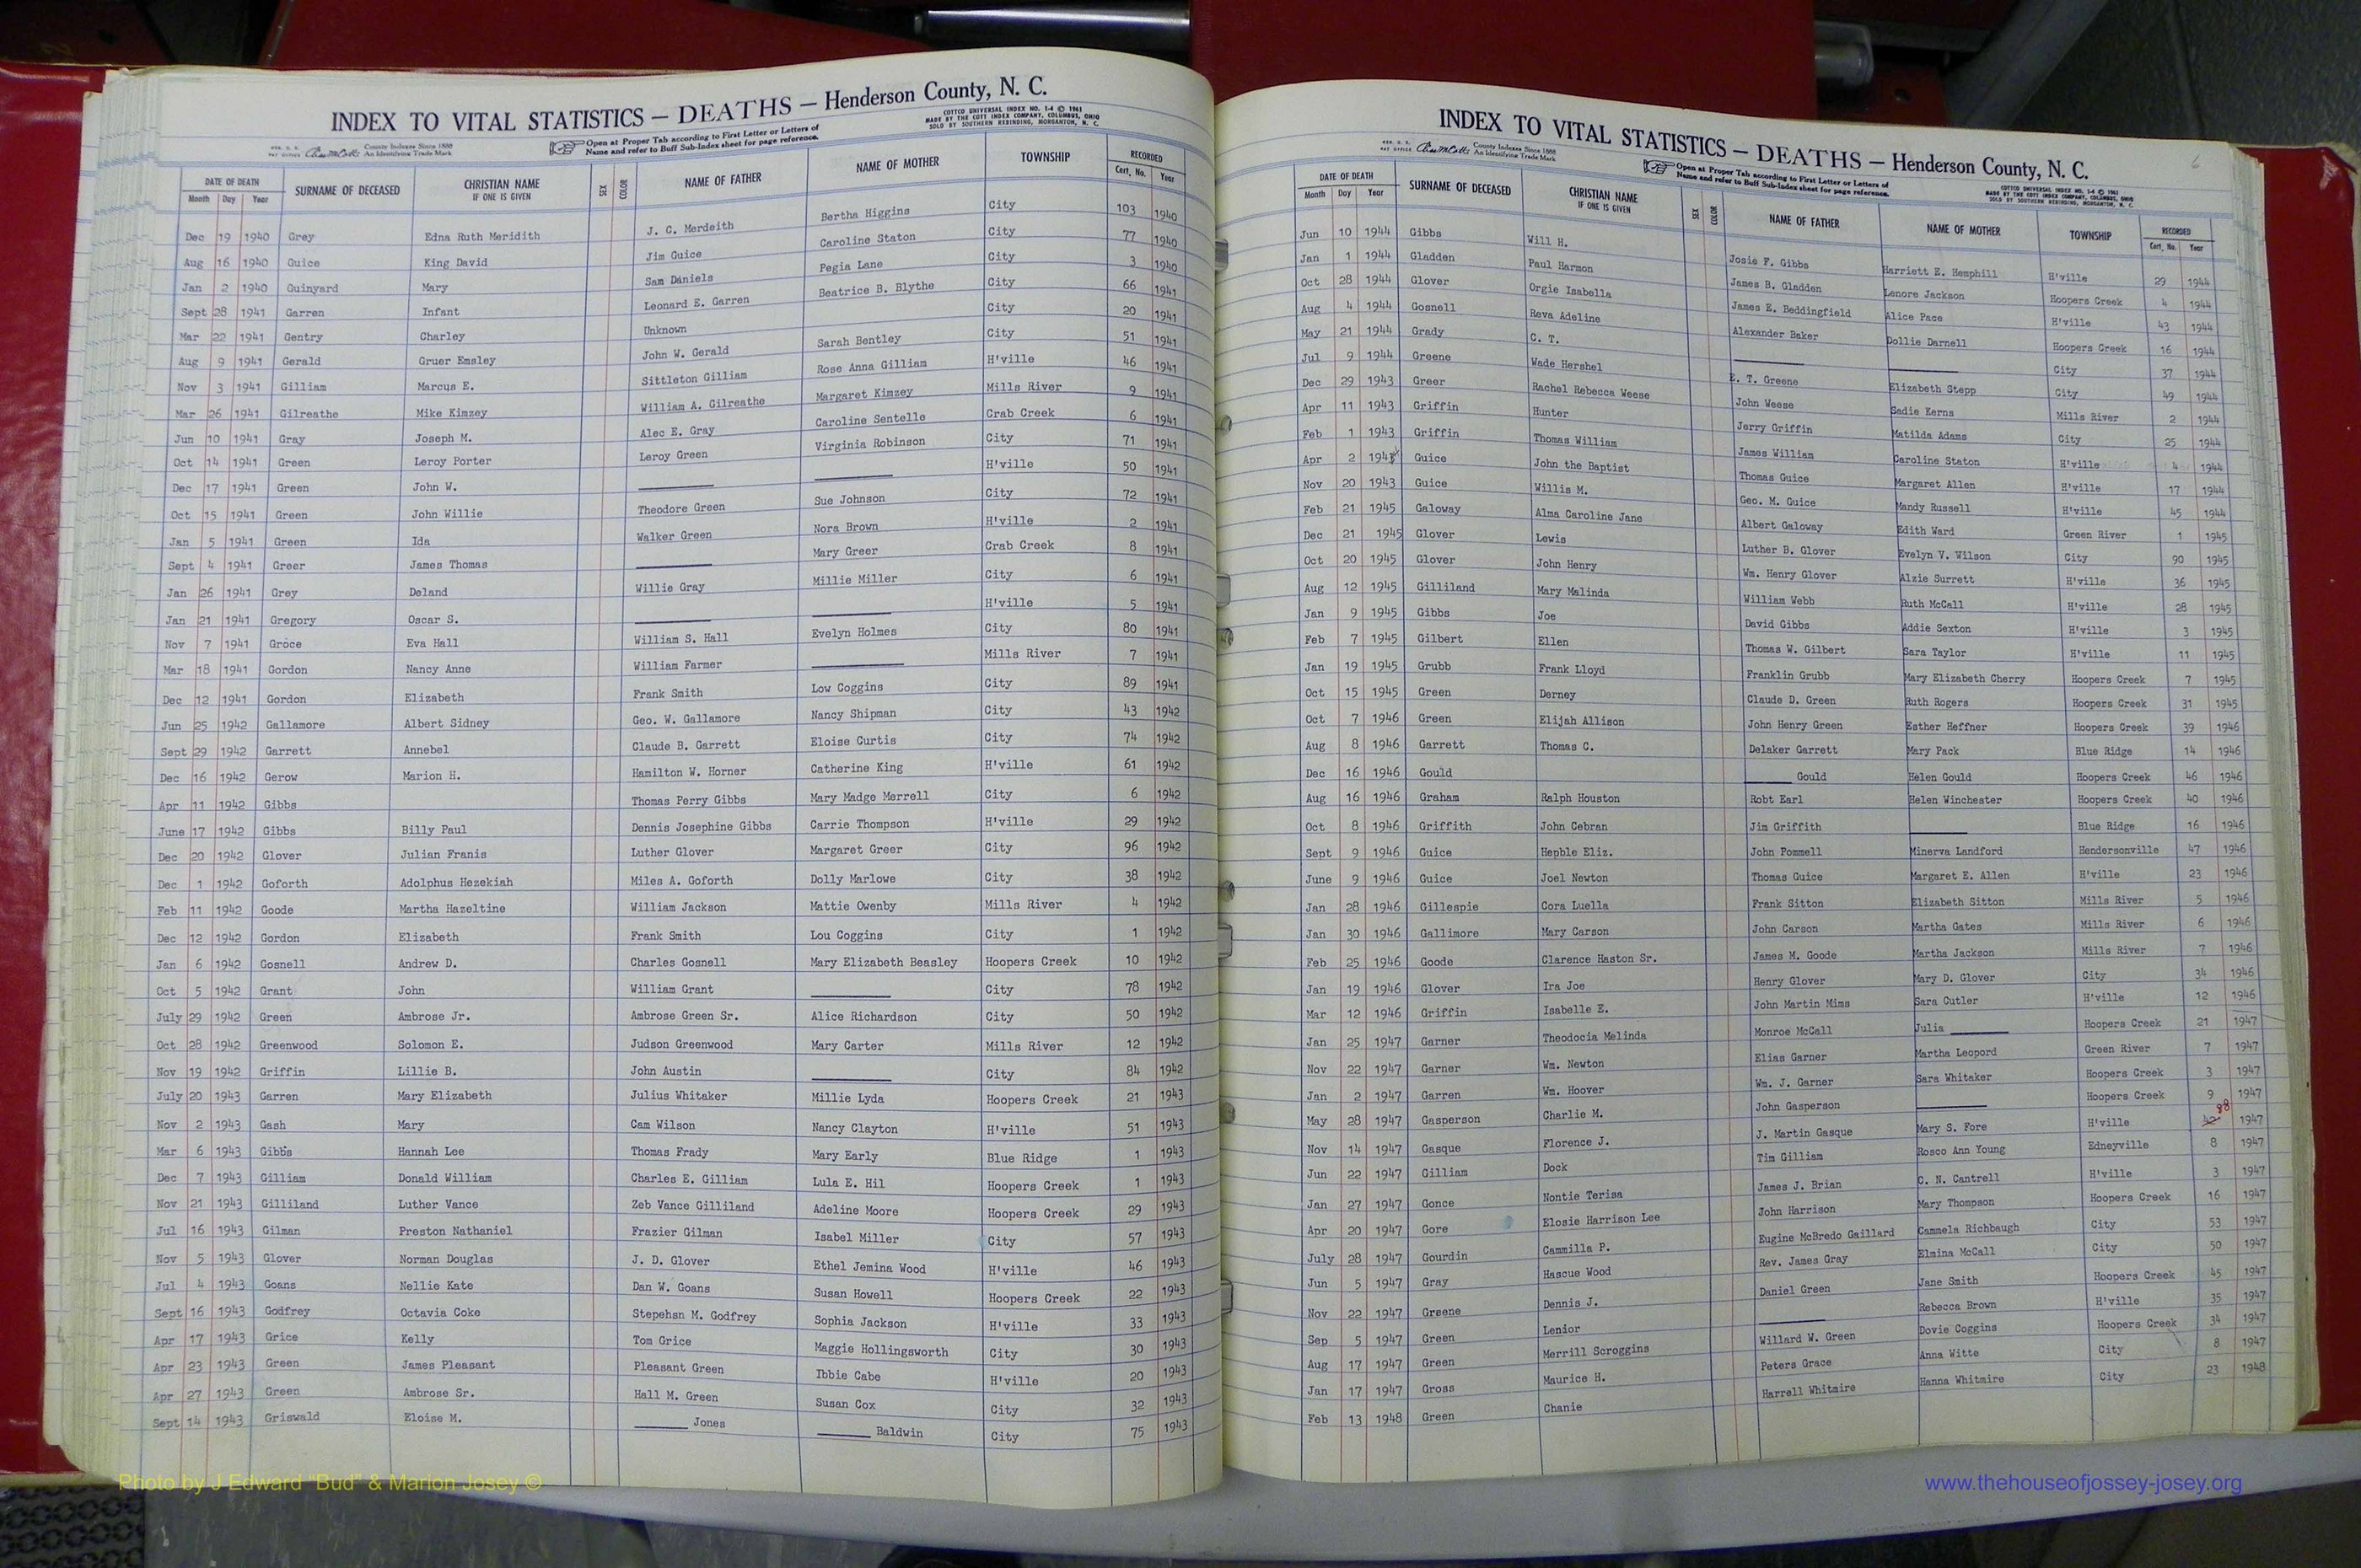 INDEX TO VITAL STATISTICS — DEATHS — Henderson County, N. C.
County Indexes Since 1888
An Identifying Trade Mark
Open at Proper Tab according to First Letter or Letters of
Name and refer to Buff Sub-Index sheet for page reference.
COTTCO UNIVERSAL INDEX NO. 1-4 © 1961
MADE BY THE COTT INDEX COMPANY, COLUMBUS, OHIO
SOLD BY SOUTHERN REBINDING, MORGANTON, N. C.
DATE OF DEATH SURNAME OF DECEASED CHRISTIAN NAME IF ONE IS GIVEN SEX COLOR NAME OF FATHER NAME OF MOTHER TOWNSHIP RECORDED
Month Day Year Cert. No. Year
Dec 19 1940 Grey Edna Ruth Meridith J. C. Merdeith Bertha Higgins City 103 1940
Aug 16 1940 Guice King David Jim Guice Caroline Staton City 77 1940
Jan 2 1940 Guinyard Mary Sam Daniels Pegia Lane City 3 1940
Sept 28 1941 Garren Infant Leonard E. Garren Beatrice B. Blythe City 66 1941
Mar 22 1941 Gentry Charley Unknown City 20 1941
Aug 9 1941 Gerald Gruer Emsley John W. Gerald Sarah Bentley City 51 1941
Nov 3 1941 Gilliam Marcus E. Sittleton Gilliam Rose Anna Gilliam H'ville 46 1941
Mar 26 1941 Gilreathe Mike Kimzey William A. Gilreathe Margaret Kimzey Mills River 9 1941
Jun 10 1941 Gray Joseph M. Alec E. Gray Caroline Sentelle Crab Creek 6 1941
Oct 14 1941 Green Leroy Porter Leroy Green Virginia Robinson City 71 1941
Dec 17 1941 Green John W. H'ville 50 1941
Oct 15 1941 Green John Willie Theodore Green Sue Johnson City 72 1941
Jan 5 1941 Green Ida Walker Green Nora Brown H'ville 2 1941
Sept 4 1941 Greer James Thomas Mary Greer Crab Creek 8 1941
Jan 26 1941 Grey Deland Willie Gray Millie Miller City 6 1941
Jan 21 1941 Gregory Oscar S. H'ville 5 1941
Nov 7 1941 Groce Eva Hall William S. Hall Evelyn Holmes City 80 1941
Mar 18 1941 Gordon Nancy Anne William Farmer Mills River 7 1941
Dec 12 1941 Gordon Elizabeth Frank Smith Low Coggins City 89 1941
Jun 25 1942 Gallamore Albert Sidney Geo. W. Gallamore Nancy Shipman City 43 1942
Sept 29 1942 Garrett Annebel Claude B. Garrett Eloise Curtis City 74 1942
Dec 16 1942 Gerow Marion H. Hamilton W. Horner Catherine King H'ville 61 1942
Apr 11 1942 Gibbs Thomas Perry Gibbs Mary Madge Merrell City 6 1942
June 17 1942 Gibbs Billy Paul Dennis Josephine Gibbs Carrie Thompson H'ville 29 1942
Dec 20 1942 Glover Julian Franis Luther Glover Margaret Greer City 96 1942
Dec 1 1942 Goforth Adolphus Hezekiah Miles A. Goforth Dolly Marlowe City 38 1942
Feb 11 1942 Goode Martha Hazeltine William Jackson Mattie Owenby Mills River 4 1942
Dec 12 1942 Gordon Elizabeth Frank Smith Lou Coggins City 1 1942
Jan 6 1942 Gosnell Andrew D. Charles Gosnell Mary Elizabeth Beasley Hoopers Creek 10 1942
Oct 5 1942 Grant John William Grant City 78 1942
July 29 1942 Green Ambrose Jr. Ambrose Green Sr. Alice Richardson City 50 1942
Oct 28 1942 Greenwood Solomon E. Judson Greenwood Mary Carter Mills River 12 1942
Nov 19 1942 Griffin Lillie B. John Austin City 84 1942
July 20 1943 Garren Mary Elizabeth Julius Whitaker Millie Lyda Hoopers Creek 21 1943
Nov 2 1943 Gash Mary Cam Wilson Nancy Clayton H'ville 51 1943
Mar 6 1943 Gibbs Hannah Lee Thomas Frady Mary Early Blue Ridge 1 1943
Dec 7 1943 Gilliam Donald William Charles E. Gilliam Lula E. Hil Hoopers Creek 1 1943
Nov 21 1943 Gilliland Luther Vance Zeb Vance Gilliland Adeline Moore Hoopers Creek 29 1943
Jul 16 1943 Gilman Preston Nathaniel Frazier Gilman Isabel Miller City 57 1943
Nov 5 1943 Glover Norman Douglas J. D. Glover Ethel Jemina Wood H'ville 46 1943
Jul 4 1943 Goans Nellie Kate Dan W. Goans Susan Howell Hoopers Creek 22 1943
Sept 16 1943 Godfrey Octavia Coke Stepehsn M. Godfrey Sophia Jackson H'ville 33 1943
Apr 17 1943 Grice Kelly Tom Grice Maggie Hollingsworth City 30 1943
Apr 23 1943 Green James Pleasant Pleasant Green Ibbie Cabe H'ville 20 1943
Apr 27 1943 Green Ambrose Sr. Hall M. Green Susan Cox City 32 1943
Sept 14 1943 Griswald Eloise M. Jones Baldwin City 75 1943
INDEX TO VITAL STATISTICS — DEATHS — Henderson County, N. C.
6
County Indexes Since 1888
An Identifying Trade Mark
Open at Proper Tab according to First Letter or Letters of
Name and refer to Buff Sub-Index sheet for page reference.
COTTCO UNIVERSAL INDEX NO. 1-4 © 1961
MADE BY THE COTT INDEX COMPANY, COLUMBUS, OHIO
SOLD BY SOUTHERN REBINDING, MORGANTON, N. C.
DATE OF DEATH SURNAME OF DECEASED CHRISTIAN NAME IF ONE IS GIVEN SEX COLOR NAME OF FATHER NAME OF MOTHER TOWNSHIP RECORDED
Month Day Year Cert. No. Year
Jun 10 1944 Gibbs Will H. Josie F. Gibbs Harriett E. Hemphill H'ville 29 1944
Jan 1 1944 Gladden Paul Harmon James B. Gladden Lenore Jackson Hoopers Creek 4 1944
Oct 28 1944 Glover Orgie Isabella James E. Beddingfield Alice Pace H'ville 43 1944
Aug 4 1944 Gosnell Reva Adeline Alexander Baker Dollie Darnell Hoopers Creek 16 1944
May 21 1944 Grady C. T. City 37 1944
Jul 9 1944 Greene Wade Hershel E. T. Greene Elizabeth Stepp City 49 1944
Dec 29 1943 Greer Rachel Rebecca Weese John Weese Sadie Kerns Mills River 2 1944
Apr 11 1943 Griffin Hunter Jerry Griffin Matilda Adams City 25 1944
Feb 1 1943 Griffin Thomas William James William Caroline Staton H'ville 4 1944
Apr 2 194 Guice John the Baptist Thomas Guice Margaret Allen H'ville 17 1944
Nov 20 1943 Guice Willis M. Geo. M. Guice Mandy Russell H'ville 45 1944
Feb 21 1945 Galoway Alma Caroline Jane Albert Galoway Edith Ward Green River 1 1945
Dec 21 1945 Glover Lewis Luther B. Glover Evelyn V. Wilson City 90 1945
Oct 20 1945 Glover John Henry Wm. Henry Glover Alzie Surrett H'ville 36 1945
Aug 12 1945 Gilliland Mary Malinda William Webb Ruth McCall H'ville 28 1945
Jan 9 1945 Gibbs Joe David Gibbs Addie Sexton H'ville 3 1945
Feb 7 1945 Gilbert Ellen Thomas W. Gilbert Sara Taylor H'ville 11 1945
Jan 19 1945 Grubb Frank Lloyd Franklin Grubb Mary Elizabeth Cherry Hoopers Creek 7 1945
Oct 15 1945 Green Derney Claude D. Green Ruth Rogers Hoopers Creek 31 1945
Oct 7 1946 Green Elijah Allison John Henry Green Esther Heffner Hoopers Creek 39 1946
Aug 8 1946 Garrett Thomas C. Delaker Garrett Mary Pack Blue Ridge 14 1946
Dec 16 1946 Gould Gould Helen Gould Hoopers Creek 46 1946
Aug 16 1946 Graham Ralph Houston Robt Earl Helen Winchester Hoopers Creek 40 1946
Oct 8 1946 Griffith John Cebran Jim Griffith Blue Ridge 16 1946
Sept 9 1946 Guice Hepble Eliz. John Pommell Minerva Landford Hendersonville 47 1946
June 9 1946 Guice Joel Newton Thomas Guice Margaret E. Allen H'ville 23 1946
Jan 28 1946 Gillespie Cora Luella Frank Sitton Elizabeth Sitton Mills River 5 1946
Jan 30 1946 Gallimore Mary Carson John Carson Martha Gates Mills River 6 1946
Feb 25 1946 Goode Clarence Haston Sr. James M. Goode Martha Jackson Mills River 7 1946
Jan 19 1946 Glover Ira Joe Henry Glover Mary D. Glover City 34 1946
Mar 12 1946 Griffin Isabelle E. John Martin Mims Sara Cutler H'ville 12 1946
Jan 25 1947 Garner Theodocia Melinda Monroe McCall Julia Hoopers Creek 21 1947
Nov 22 1947 Garner Wm. Newton Elias Garner Martha Leopord Green River 7 1947
Jan 2 1947 Garren Wm. Hoover Wm. J. Garner Sara Whitaker Hoopers Creek 3 1947
May 28 1947 Gasperson Charlie M. John Gasperson Hoopers Creek 9 1947
Nov 14 1947 Gasque Florence J. J. Martin Gasque Mary S. Fore H'ville 88 1947
Jun 22 1947 Gilliam Dock Tim Gilliam Rosco Ann Young Edneyville 8 1947
Jan 27 1947 Gonce Nontie Terisa James J. Brian C. N. Cantrell H'ville 3 1947
Apr 20 1947 Gore Elosie Harrison Lee John Harrison Mary Thompson Hoopers Creek 16 1947
July 28 1947 Gourdin Cammilla P. Eugine McBredo Gaillard Cammela Richbaugh City 53 1947
Jun 5 1947 Gray Hascue Wood Rev. James Gray Elmina McCall City 50 1947
Nov 22 1947 Greene Dennis J. Daniel Green Jane Smith Hoopers Creek 45 1947
Sep 5 1947 Green Lenior Rebecca Brown H'ville 35 1947
Aug 17 1947 Green Merrill Scroggins Willard W. Green Dovie Coggins Hoopers Creek 34 1947
Jan 17 1947 Gross Maurice H. Peters Grace Anna Witte City 8 1947
Feb 13 1948 Green Chanie Harrell Whitmire Hanna Whitmire City 23 1948
Photo by J Edward "Bud" & Marion Josey ©
www.thehouseofjossey-josey.org